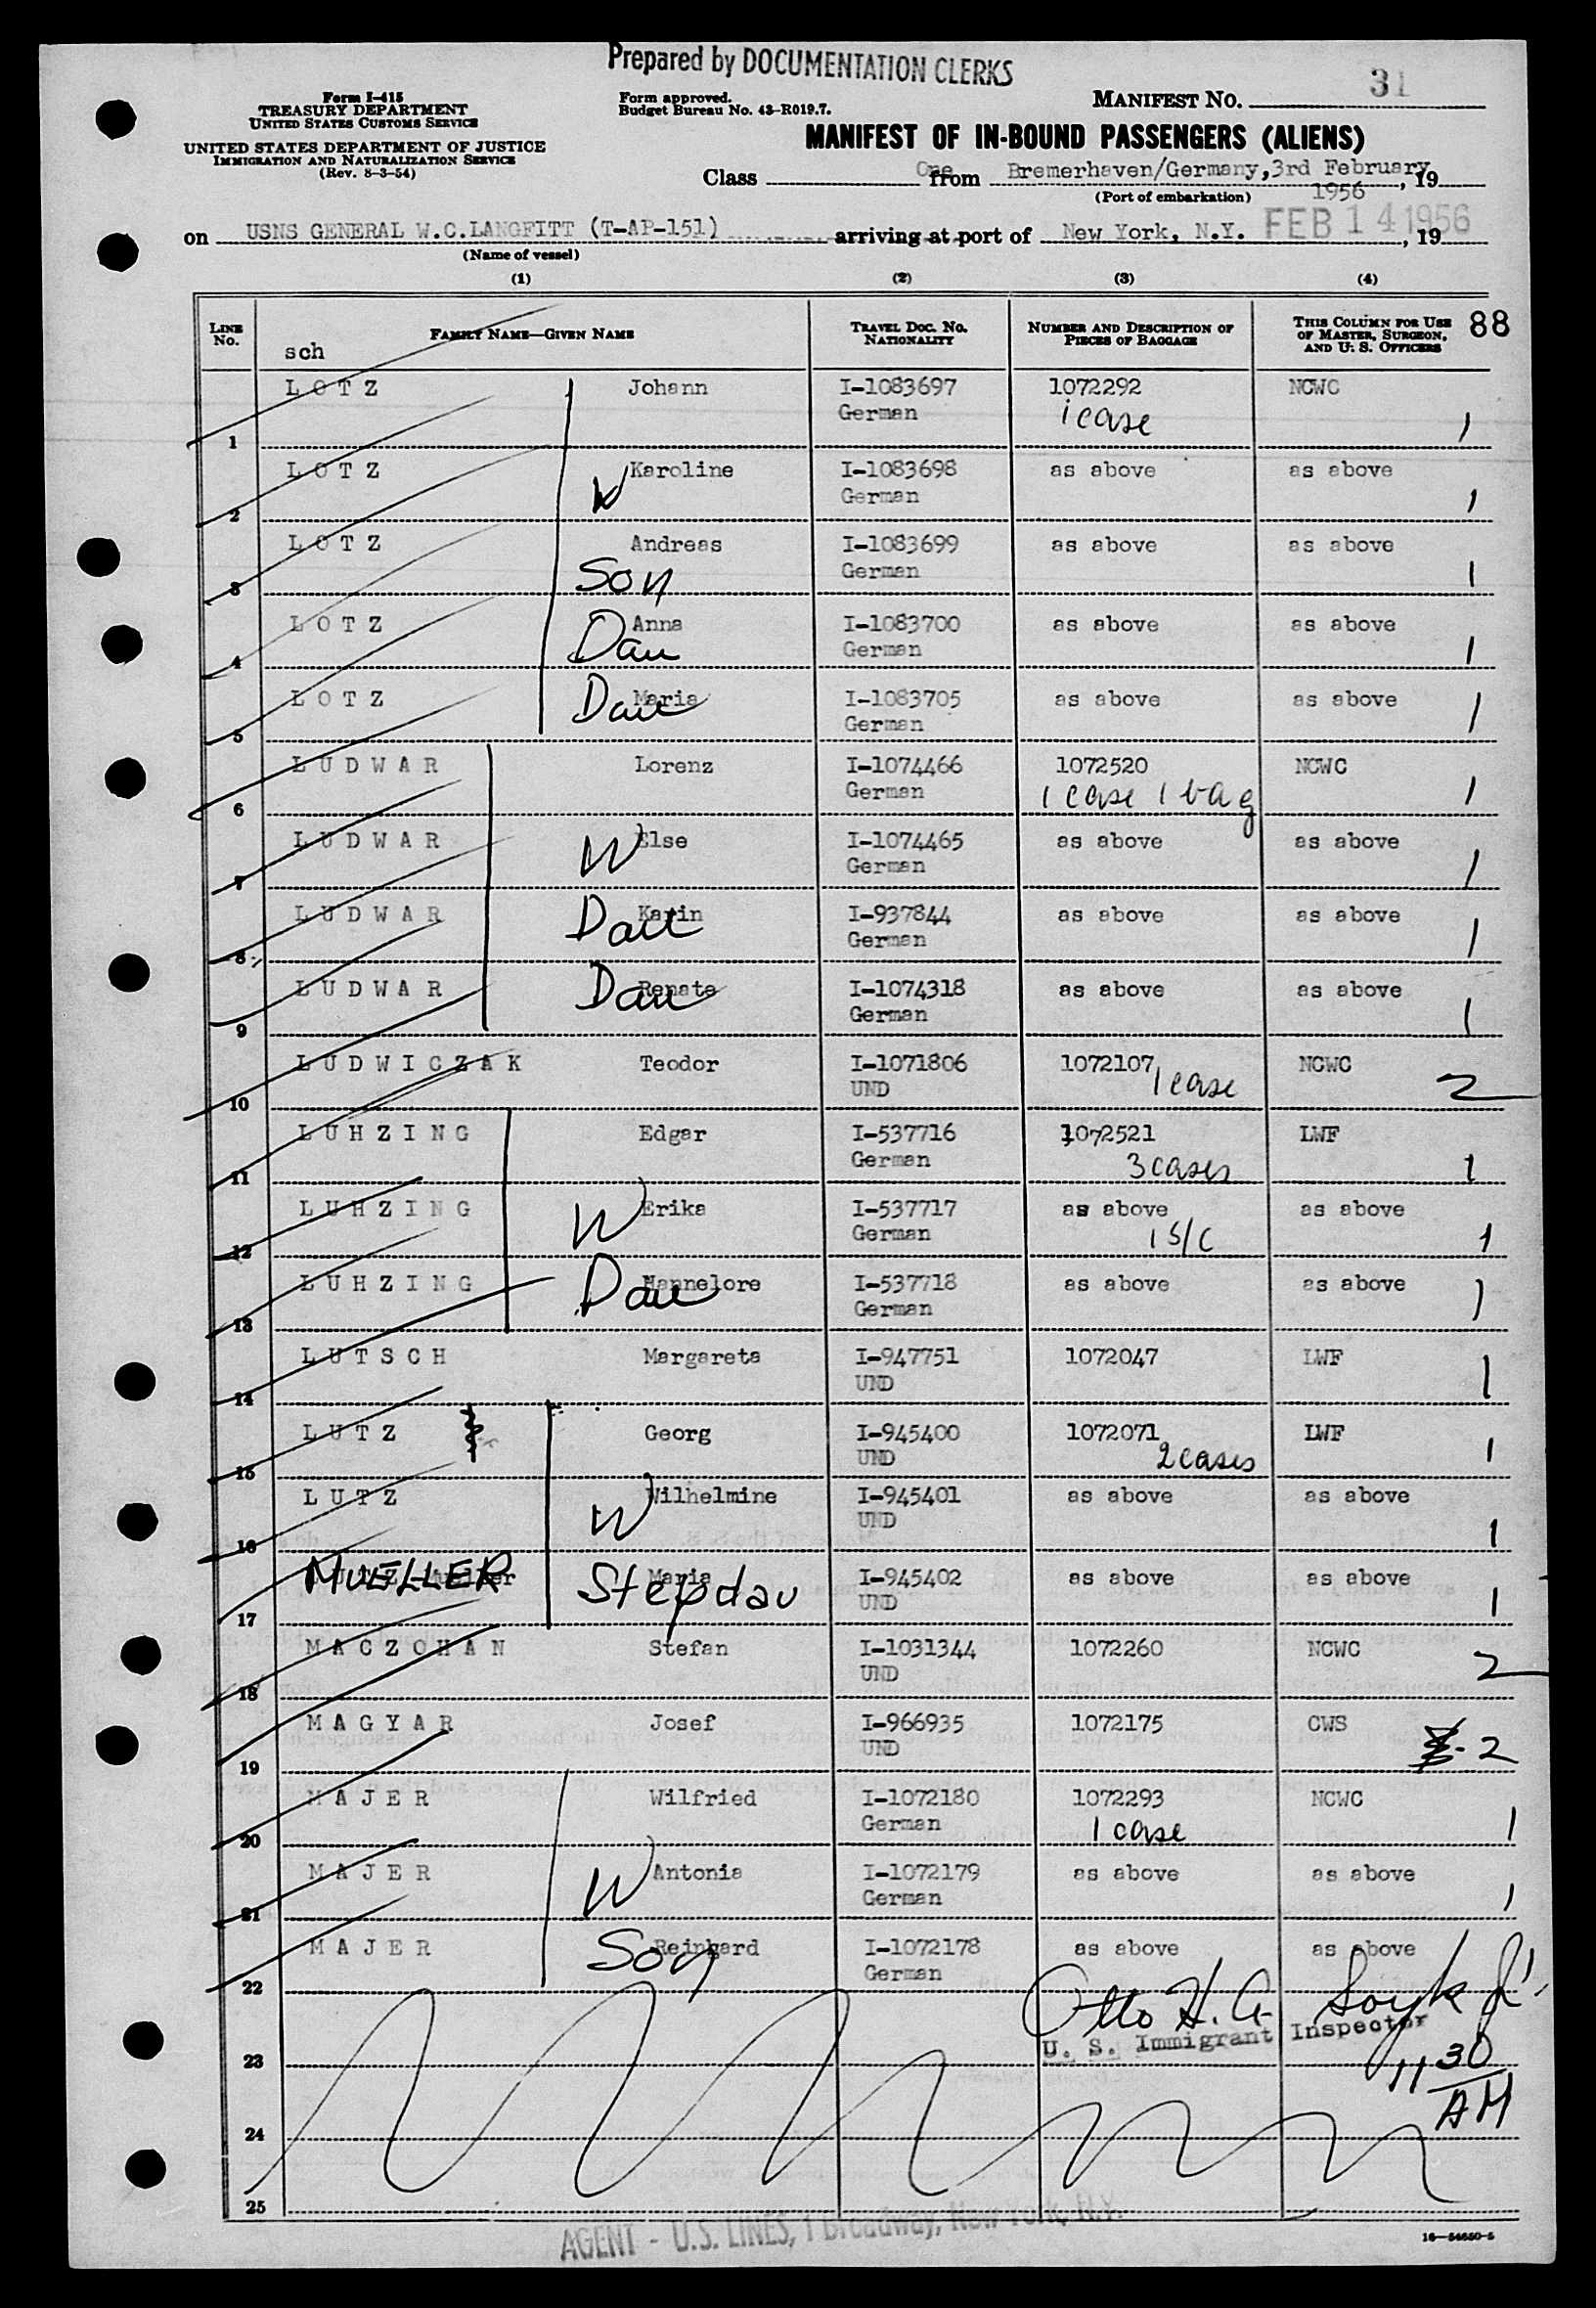 Prepared by DOCUMENTATION CLERKS
Form I-415
TREASURY DEPARTMENT
UNITED STATES CUSTOMS SERVICE
UNITED STATES DEPARTMENT OF JUSTICE
IMMIGRATION AND NATURALIZATION SERVICE
(Rev. 8-3-54)
Form approved.
Budget Bureau No. 43-R019.7.
MANIFEST NO. 31
MANIFEST OF IN-BOUND PASSENGERS (ALIENS)
Class One from Bremerhaven/Germany, 3rd February, 19
1956
(Port of embarkation)
on USNS GENERAL W.C.LANGFITT (T-AP-151) arriving at port of New York, N.Y. FEB 14 1956, 19
(Name of vessel)
(1) (2) (3) (4)
LINE No. FAMILY NAME—GIVEN NAME TRAVEL DOC. NO. NATIONALITY NUMBER AND DESCRIPTION OF PIECES OF BAGGAGE THIS COLUMN FOR USE OF MASTER, SURGEON, AND U. S. OFFICERS 88
sch
1 LOTZ Johann I-1083697 German 1072292 1 case NCWC 1
2 LOTZ W Karoline I-1083698 German as above as above 1
3 LOTZ Andreas Son I-1083699 German as above as above 1
4 LOTZ Anna Dau I-1083700 German as above as above 1
5 LOTZ Maria Dau I-1083705 German as above as above 1
6 LUDWAR Lorenz I-1074466 German 1072520 1 case 1 bag NCWC 1
7 LUDWAR W Else I-1074465 German as above as above 1
8 LUDWAR Karin Dau I-937844 German as above as above 1
9 LUDWAR Renate Dau I-1074318 German as above as above 1
10 LUDWICZAK Teodor I-1071806 UND 1072107 1 case NCWC 2
11 LUHZING Edgar I-537716 German 1072521 3 cases LWF 1
12 LUHZING W Erika I-537717 German as above 1 S/C as above 1
13 LUHZING Hannelore Dau I-537718 German as above as above 1
14 LUTSCH Margareta I-947751 UND 1072047 LWF 1
15 LUTZ Georg I-945400 UND 1072071 2 cases LWF 1
16 LUTZ W Wilhelmine I-945401 UND as above as above 1
17 MUELLER Maria Stepdau I-945402 UND as above as above 1
18 MACZOHAN Stefan I-1031344 UND 1072260 NCWC 2
19 MAGYAR Josef I-966935 UND 1072175 CWS 2
20 MAJER Wilfried I-1072180 German 1072293 1 case NCWC 1
21 MAJER W Antonia I-1072179 German as above as above 1
22 MAJER Reinhard Son I-1072178 German as above as above 1
Otto H. G.
U. S. Immigrant Inspector
23
11 30
AM
24
25
AGENT - U.S. LINES, 1 Broadway, New York, N.Y.
16—54650-5